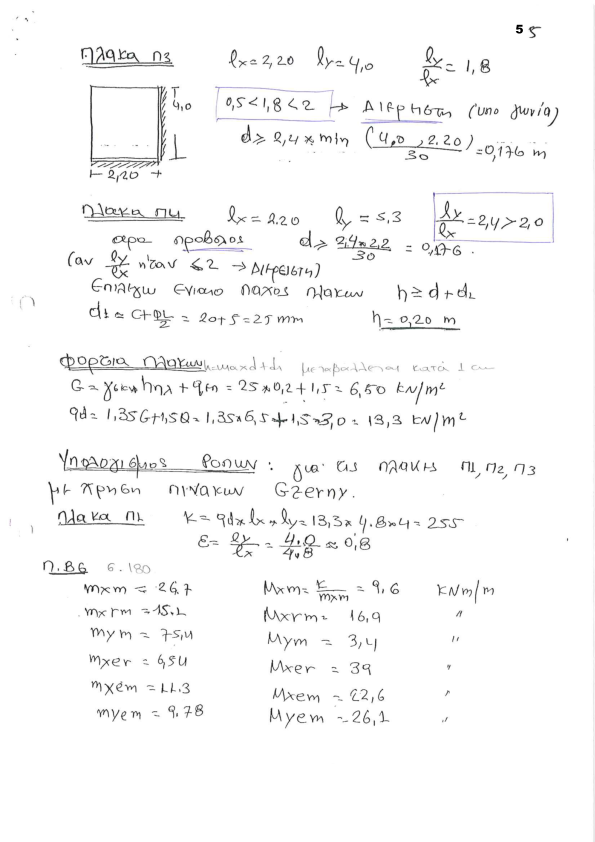 5 5
Πλακα Π3 lx=2,20 ly=4,0 ly/lx = 1,8
4,0
2,20
0,5<1,8<2 → Διερηστη (υπο γωνία)
d ≥ 2,4 * min (4,0, 2.20)/30 = 0,176 m
Πλακα Π4 lx = 2.20 ly = 5,3 ly/lx = 2,4 > 2,0
αρα προβολος d ≥ 2,4*2,2/30 = 0,176.
(αν ly/lx ηταν <2 → Διερειστη)
Επιλεγω ενιαιο παχος πλακων h ≥ d+d1
d1 ≃ C+ΦL/2 = 20+5 = 25 mm h = 0,20 m
Φορτια πλακων h=maxd+d1 μεταβαλλεται κατά 1 cm
G = γσκυρ hπλ + qεπ = 25*0,2 + 1,5 = 6,50 kN/m²
qd = 1,35G+1,5Q = 1,35*6,5+1,5*3,0 = 13,3 kN/m²
Υπολογισμος Ροπων : για τις πλακες Π1,Π2,Π3
με χρηση πινακων Czerny.
Πλακα Π1 K = qd*lx*ly = 13,3*4.8*4 = 255
ε = ly/lx = 4.0/4.8 ≈ 0,8
Π.Β6 6.180
mxm = 26.7 Mxm = K/mxm = 9,6 KNm/m
mxrm = 15.1 Mxrm = 16,9 "
mym = 75,4 Mym = 3,4 "
mxer = 6,54 Mxer = 39 "
mxem = 11.3 Mxem = 22,6 "
myem = 9.78 Myem = 26,1 "